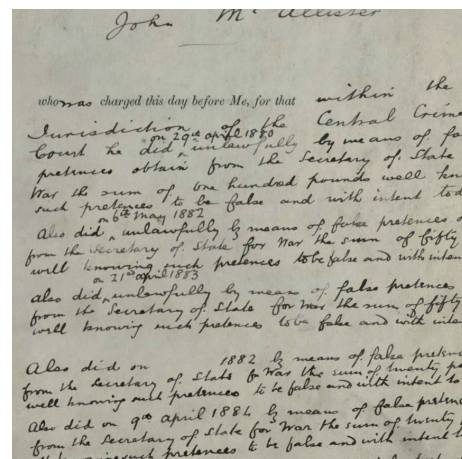 John Mc Allister
who was charged this day before Me, for that within the
Jurisdiction of the Central Crime
on 29th april 1880
Court he did unlawfully by means of fa
pretences obtain from the Secretary of State
War the sum of one hundred pounds well kno
such pretences to be false and with intent to d
on 6th May 1882
Also did unlawfully by means of false pretences o
from the Secretary of State for War the sum of fifty
well knowing such pretences to be false and with inten
on 21st april 1883
also did unlawfully by means of false pretences
from the Secretary of State for War the sum of fifty
well knowing such pretences to be false and with inte
Also did on 1882 by means of false pretenc
from the Secretary of State for War the sum of twenty po
well knowing such pretences to be false and with intent to
Also did on 9th april 1884 by means of false preten
from the Secretary of State for War the sum of twenty
such pretences to be false and with intent t